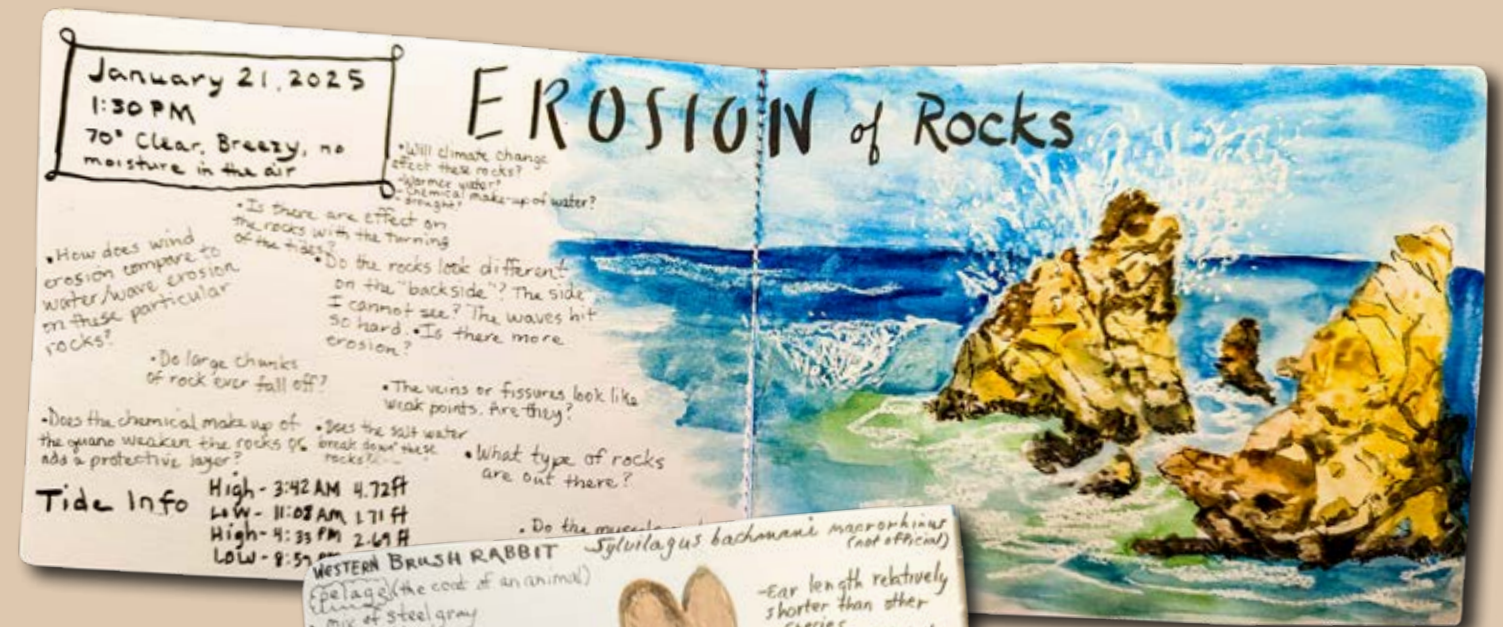 January 21, 2025
1:30 PM
70° Clear, Breezy, no
moisture in the air
EROSION of Rocks
•Will climate change
effect these rocks?
-Warmer water?
-Chemical make-up of water?
-Drought?
•Is there are effect on
the rocks with the turning
of the tides?
•How does wind
erosion compare to
water/wave erosion
on these particular
rocks?
•Do the rocks look different
on the "backside"? The side
I cannot see? The waves hit
so hard. •Is there more
erosion?
•Do large chunks
of rock ever fall off?
•The veins or fissures look like
weak points. Are they?
•Does the chemical make up of
the guano weaken the rocks or
add a protective layer?
•Does the salt water
break down these
rocks?
•What type of rocks
are out there?
Tide Info
High - 3:42 AM 4.72ft
Low - 11:08 AM 1.71 ft
High - 4:33 PM 2.69 ft
Low - 8:59
•Do the
WESTERN BRUSH RABBIT
Sylvilagus bachmani macrorhinus
(not official)
pelage (the coat of an animal)
mix of steel gray
-Ear length relatively
shorter than other
species